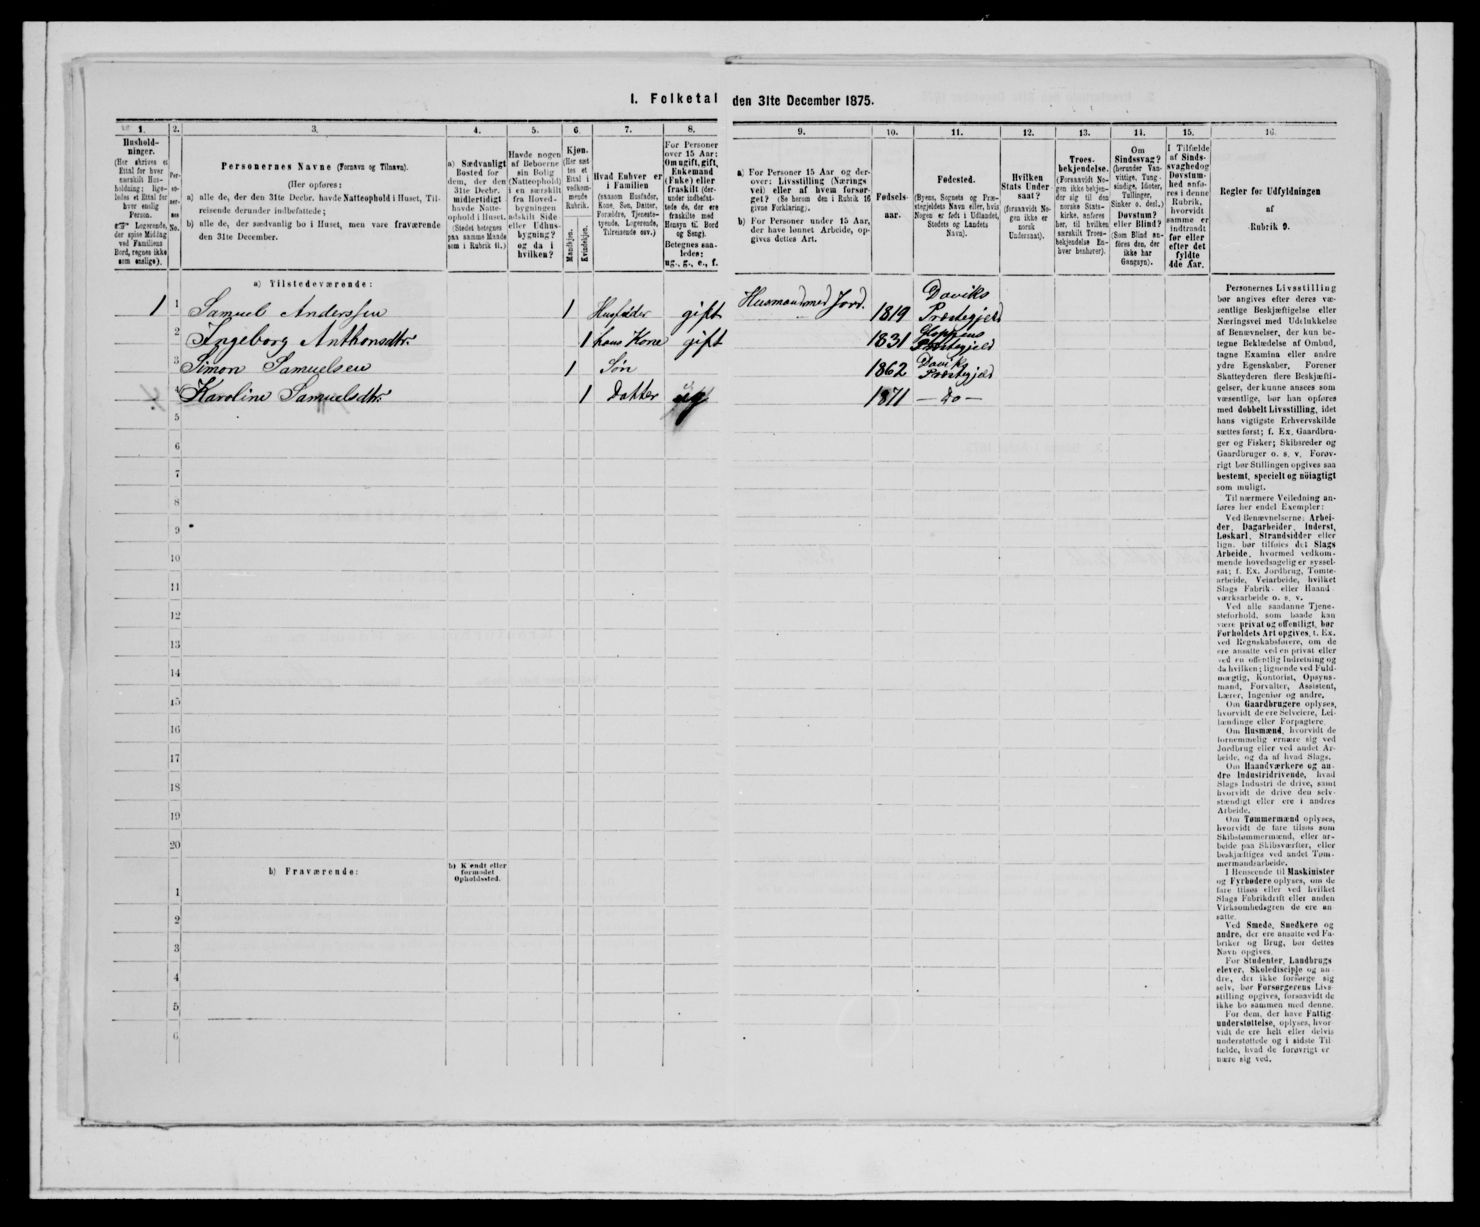 I. Folketal den 31te December 1875.
1. 2. 3. 4. 5. 6. 7. 8. 9. 10. 11. 12. 13. 14. 15. 16.
Hushold-
ninger.
(Her skrives et
Ettal for hver
særskilt Hus-
holdning; lige-
ledes et Ettal for
hver enslig
Person.
Logerende,
der spise Middag
ved Familiens
Bord, regnes ikke
som enslige).
Per-
so-
ner-
nes
No.
Personernes Navne (Fornavn og Tilnavn).
(Her opføres:
a) alle de, der den 31te Decbr. havde Natteophold i Huset, Til-
reisende derunder indbefattede;
b) alle de, der sædvanlig bo i Huset, men vare fraværende
den 31te December.
a) Sædvanligt
Bosted for
dem, der den
31te Decbr.
midlertidigt
havde Natte-
ophold i Huset.
(Stedet betegnes
paa samme Maade
som i Rubrik 11.)
Havde nogen
af Beboerne
sin Bolig
(Natteophold)
i en særskilt
fra Hoved-
bygningen
adskilt Side
eller Udhus-
bygning?
og da i
hvilken?
Kjøn.
(Her sæt
tes et
Ettal i
vedkom-
mende
Rubrik.
Mandkjøn.
Kvindekjøn.
Hvad Enhver er
i Familien
(saasom Husfader,
Kone, Søn, Datter,
Forældre, Tjeneste-
tyende, Logerende,
Tilreisende osv.)
For Personer
over 15 Aar:
Om ugift, gift,
Enkemand
(Enke) eller
fraskilt (der-
under indbefat-
tede de, der ere
fraskilte med
Hensyn til Bord
og Seng).
Betegnes saa-
ledes:
ug., g., e., f.
a) For Personer 15 Aar og der-
over: Livsstilling (Nærings
vei) eller af hvem forsør-
get? (Se herom den i Rubrik 16
givne Forklaring).
b) For Personer under 15 Aar,
der have lønnet Arbeide, op-
gives dettes Art.
Fødsels-
aar.
Fødested.
(Byens, Sognets og Præ-
stegjeldets Navn eller, hvis
Nogen er født i Udlandet,
Stedets og Landets
Navn).
Hvilken
Stats Under
saat?
(foraavidt No-
gen ikke er
norsk
Undersaat).
Troes-
bekjendelse.
(Foraavidt No-
gen ikke bekjen-
der sig til den
norske Stats-
kirke, anføres
her, til hvilken
særskilt Troes-
bekjendelse En-
hver henhører).
Om
Sindssvag?
(herunder Van-
vittige, Tung-
sindige, Idioter,
Tullinger,
Sinker o. desl.)
Døvstum?
eller Blind?
(Som Blind an-
føres den, der
ikke har
Gangsyn).
I Tilfælde
af Sinds-
svaghed og
Døvstum-
hed anfø-
res i denne
Rubrik,
hvorvidt
samme er
indtraadt
før eller
efter det
fyldte
4de Aar.
Regler for Udfyldningen
af
Rubrik 9.
a) Tilstedeværende:
1 1 Samuel Anderssen 1 Husfader gift Husmand med Jord. 1819 Daviks Præstegjeld
2 Ingeborg Anthonsdtr. 1 hans Kone gift 1831 Præstegjeld
3 Simon Samuelsen 1 Søn 1862 Daviks Præstegjæld
4 Karoline Samuelsdtr. 1 Datter 1871 – Do –
5
6
7
8
9
10
11
12
13
14
15
16
17
18
19
20
b) Fraværende:
b) Kjendt eller
formodet
Opholdssted.
1
2
3
4
5
6
Personernes Livsstilling
bør angives efter deres væ-
sentlige Beskjæftigelse eller
Næringsvei med Udelukkelse
af Benævnelser, der kun be-
tegne Beklædelse af Ombud,
tagne Examina eller andre
ydre Egenskaber. Forener
Skatteyderen flere Beskjæfti-
gelser, der kunne ansees som
væsentlige, bør han opføres
med dobbelt Livsstilling, idet
hans vigtigste Erhvervskilde
sættes først; f. Ex. Gaardbru-
ger og Fisker; Skibsreder og
Gaardbruger o. s. v. Forøv-
rigt bør Stillingen opgives saa
bestemt, specielt og nöiagtigt
som muligt.
Til nærmere Veiledning an-
føres her endel Exempler:
Ved Benævnelserne: Arbei-
der, Dagarbeider, Inderst,
Løskarl, Strandsidder eller
lign. bør tilføies det Slags
Arbeide, hvormed vedkom-
mende hovedsagelig er syssel-
sat; f. Ex. Jordbrug, Tomte-
arbeide, Veiarbeide, hvilket
Slags Fabrik- eller Haand
værksarbeide o. s. v.
Ved alle saadanne Tjene-
steforhold, som baade kan
være privat og offentligt, bør
Forholdets Art opgives, f. Ex.
ved Regnskabsførere, om de
ere ansatte ved en privat eller
ved en offentlig Indretning og
da hvilken; lignende ved Fuld-
mægtig, Kontorist, Opsyns-
mand, Forvalter, Assistent,
Lærer, Ingeniør og andre.
Om Gaardbrugere oplyses,
hvorvidt de ere Selveiere, Lei-
lændinge eller Forpagtere.
Om Husmænd, hvorvidt de
fornemmelig ernære sig ved
Jordbrug eller ved andet Ar-
beide, og da af hvad Slags.
Om Haandværkere og an-
dre Industridrivende, hvad
Slags Industri de drive, samt
hvorvidt de drive den selv-
stændigt eller ere i andres
Arbeide.
Om Tømmermænd oplyses,
hvorvidt de fare tilsøs som
Skibstømmermænd, eller ar-
beide paa Skibsværfter, eller
beskjæftiges ved andet Tøm-
mermandsarbeide.
I Henseende til Maskinister
og Fyrbødere oplyses, om de
fare tilsøs eller ved hvilket
Slags Fabrikdrift eller anden
Virksomhedsgren de ere an-
satte.
Ved Smede, Snedkere og
andre, der ere ansatte ved Fa-
briker og Brug, bør dettes
Navn opgives.
For Studenter, Landbrugs
elever, Skoledisciple og an-
dre, der ikke forsørge sig
selv, bør Forsørgerens Livs-
stilling opgives, forsaavidt de
ikke bo sammen med denne.
For dem, der have Fattig-
understøttelse, oplyses, hvor-
vidt de ere helt eller delvis
understøttede og i sidste Til-
fælde, hvad de forøvrigt er
nære sig ved.